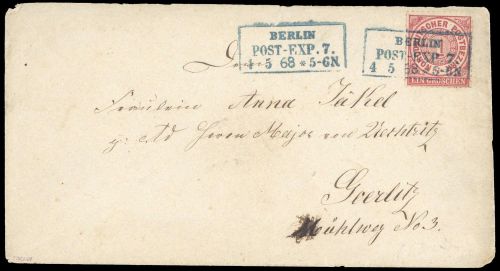 BERLIN
POST-EXP. 7.
4 5 68 * 5-6N
BERLIN
POST-EXP. 7.
4 5 68 * 5-6N
NORDDEUTSCHER POSTBEZIRK
EIN GROSCHEN
Fräulein Anna Jäkel
Herrn Major von
Goerlitz
Mühlweg No 3.